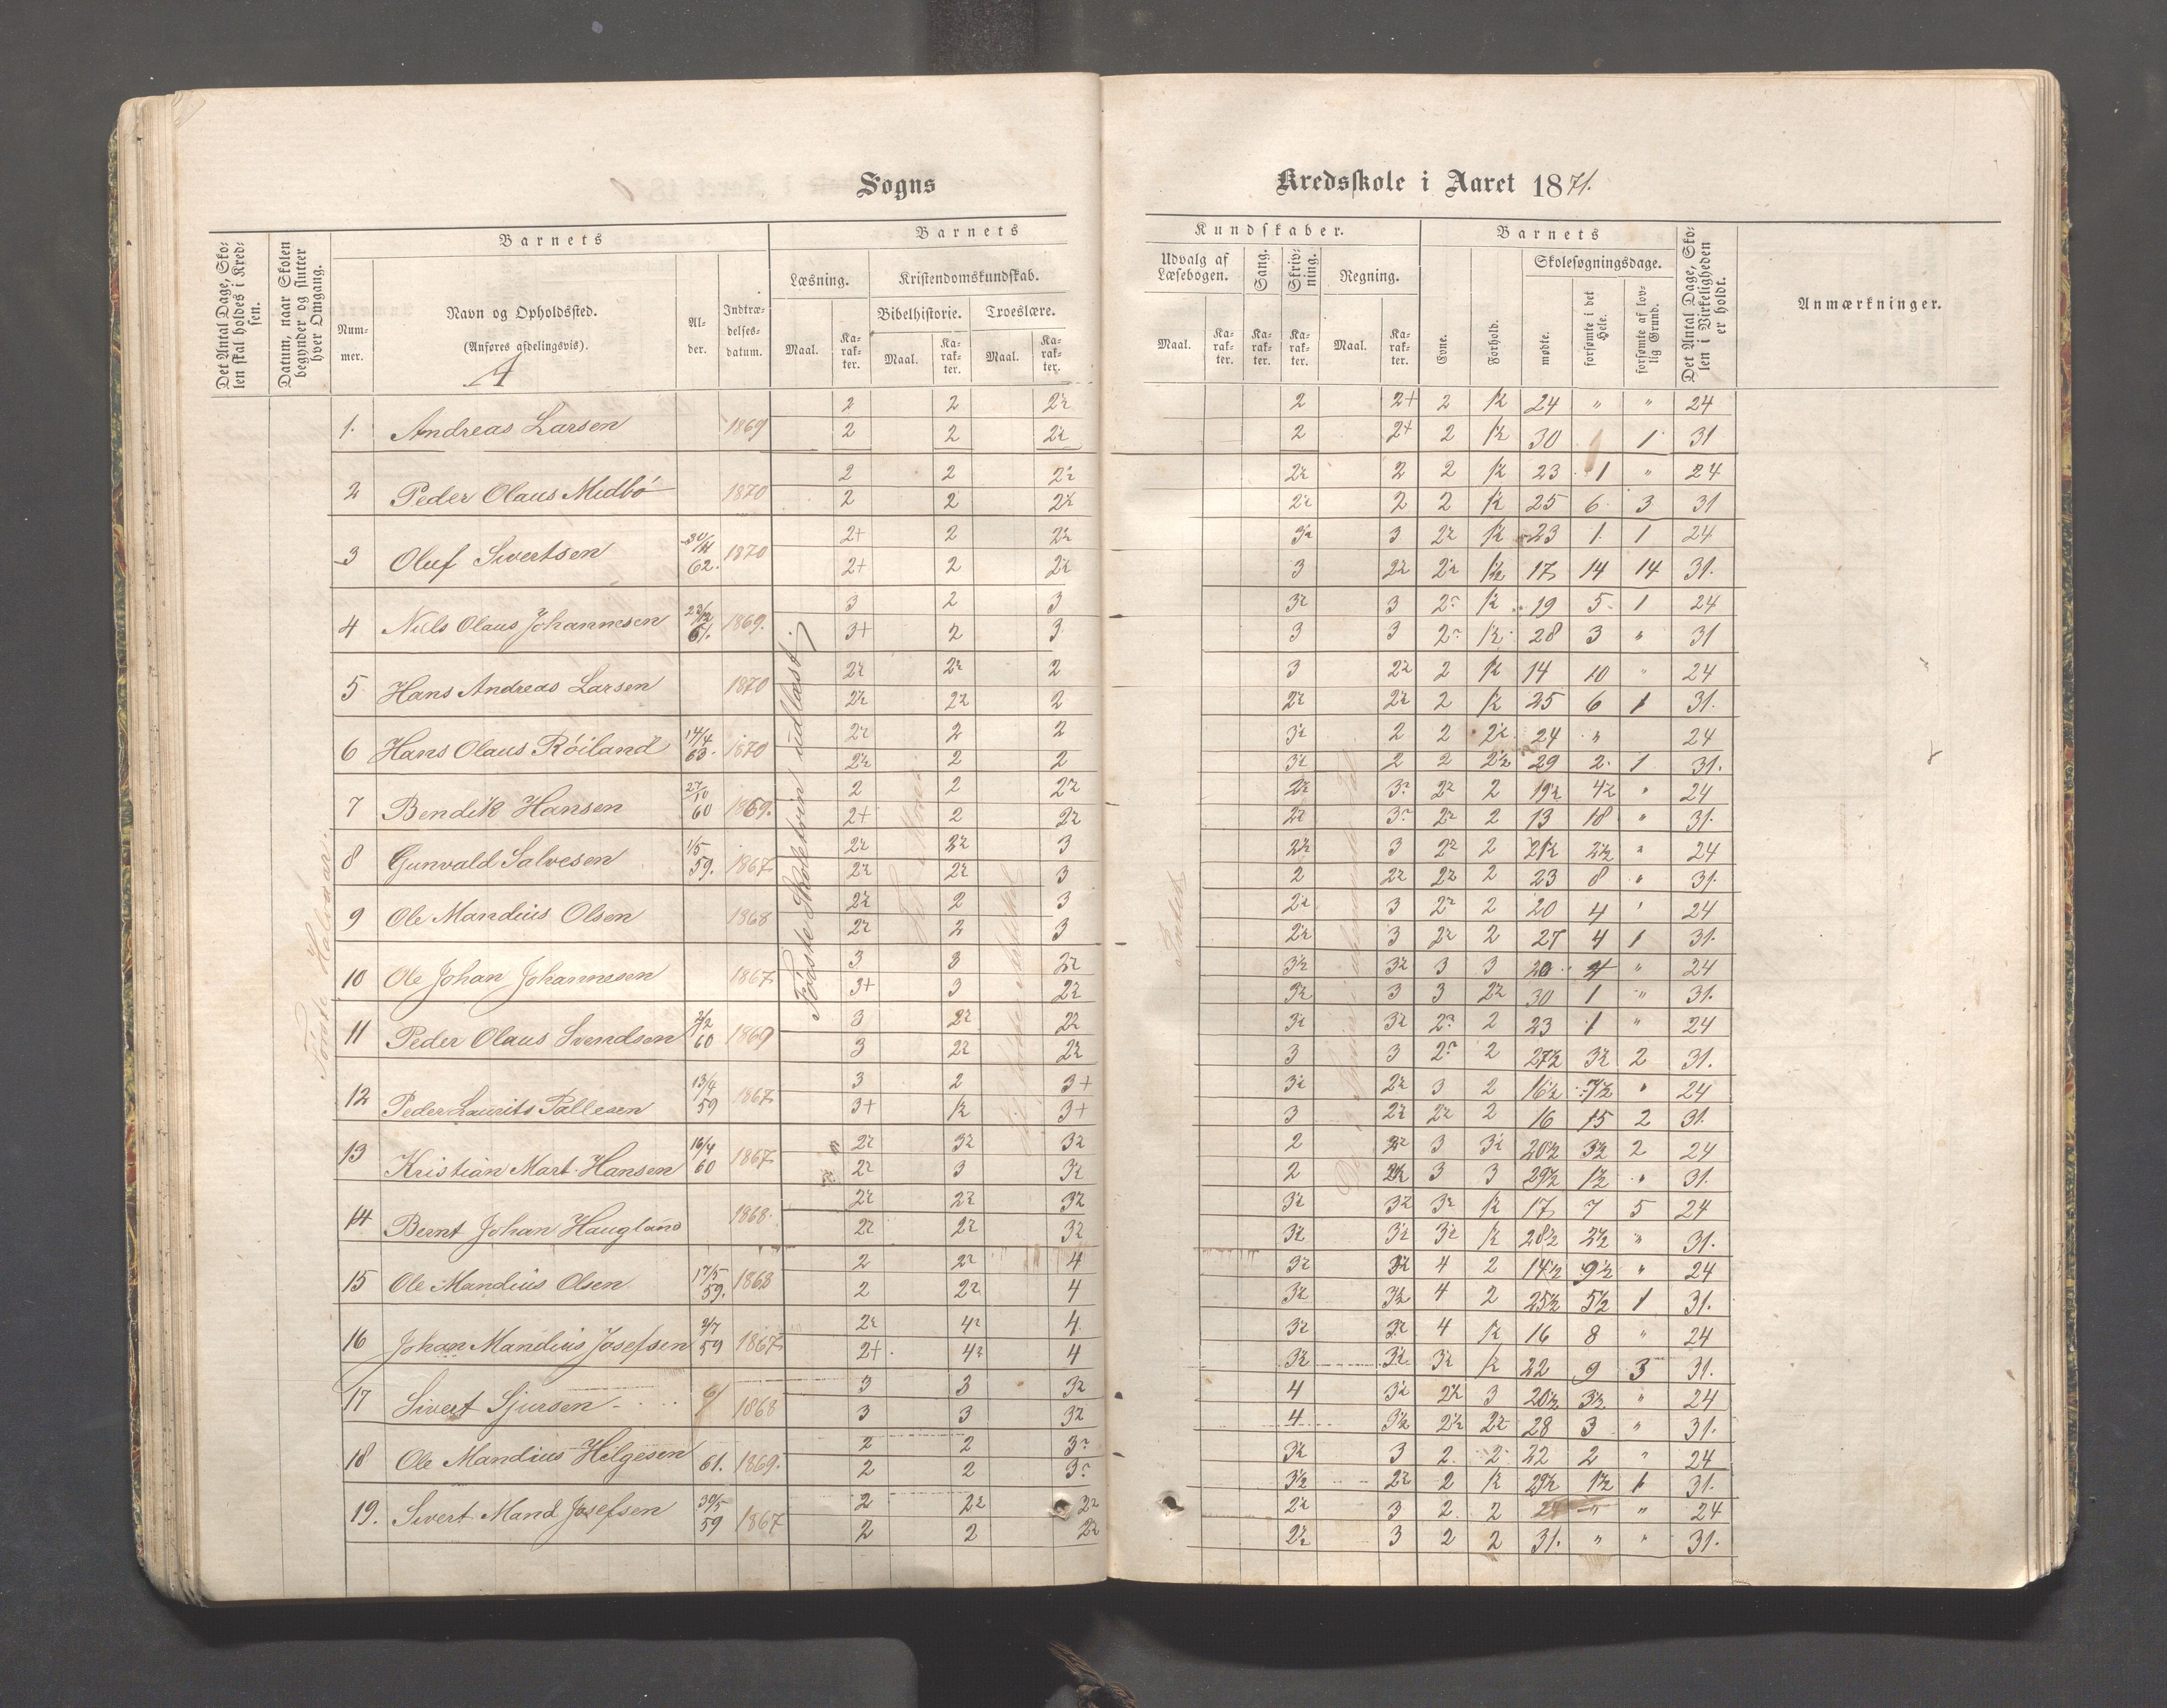 Sogns
Kredsskole i Aaret 1871.
Det Antal Dage, Skolen skal holdes i Kredsen.
Datum, naar Skolen begynder og slutter hver Omgang.
Barnets
Nummer.
Navn og Opholdssted.
(Anføres afdelingsvis).
A
Alder.
Indtrædelsesdatum.
Barnets
Læsning.
Maal.
Karakter.
Kristendomskundskab.
Bibelhistorie.
Maal.
Karakter.
Troeslære.
Maal.
Karakter.
Kundskaber.
Udvalg af Læsebogen.
Maal.
Karakter.
Sang.
Karakter.
Skrivning.
Karakter.
Regning.
Maal.
Karakter.
Barnets
Evne.
Forhold.
Skolesøgningsdage.
mødte.
forsømte i det Hele.
forsømte af lovlig Grund.
Det Antal Dage, Skolen i Virkeligheden er holdt.
Anmærkninger.
Første Halvaar.
Første Skoletrin udlæst.
1. Andreas Larsen 1869 2 2 2½ 2 2+ 2 1½ 24 " " 24
2 2 2½ 2 2+ 2 1½ 30 1 1 31
2 Peder Olaus Midbö 1870 2 2 2½ 2½ 2 2 1½ 23 1 " 24
2 2 2½ 2½ 2 2 1½ 25 6 3 31
3 Oluf Sivertsen 62. 1870 2+ 2 2½ 3½ 3 2½ 1½ 23 1 1 24
2+ 2 2½ 3 2½ 2½ 1½ 17 14 14 31.
4 Niels Olaus Johannesen 23/12 61. 1869. 3 2 3 3½ 3 2½ 1½ 19 5 1 24
3+ 2 3 3 3 2½ 1½ 28 3 " 31
5 Hans Andreas Larsen 1870 2½ 2½ 2 3 2½ 2 1½ 14 10 " 24
2½ 2½ 2 2½ 2½ 2 1½ 25 6 1 31.
6 Hans Olaus Röiland 14/4 63. 1870 2½ 2 2 3½ 2 2 2½ 24 " 24
2½ 2 2 3½ 2 2 2½ 29 2 1 31.
7 Bendik Hansen 27/10 60 1869. 2 2 2½ 2½ 3½ 2½ 2 19½ 4½ " 24
2+ 2 2½ 2½ 3½ 2½ 2 13 18 " 31.
8 Gunvald Salvesen 1/5 59. 1867 2½ 2½ 3 2½ 3 2½ 2 21½ 2½ " 24
2½ 2½ 3 2 2½ 2½ 2 23 8 " 31.
9 Ole Mandius Olsen 1868 2½ 2 3 2½ 3 2½ 2 20 4 " 24
2½ 2 3 2½ 3 2½ 2 27 4 1 31.
10 Ole Johan Johannesen 1867 3 3 2½ 3½ 3½ 3 3 20 4 " 24
3+ 3 2½ 3½ 3 3 2½ 30 1 " 31.
11 Peder Olaus Svendsen 2/2 60 1869 3 2½ 2½ 3½ 3½ 2½ 2 23 1 " 24
3 2½ 2½ 3 3 2½ 2 27½ 3½ 2 31.
12 Peder Laurits Pallesen 13/4 59 1867 3 2 3+ 3½ 2½ 3 2 16½ 7½ " 24
3+ 1½ 3+ 3 2½ 2½ 2 16 15 2 31.
13 Kristian Mart. Hansen 16/4 60 1867 2½ 3½ 3½ 2 2½ 3 3½ 20½ 3½ 2 24
2½ 3 3½ 2 2½ 3 3 29½ 1½ " 31.
14 Bernt Johan Haugland 1868. 2½ 2½ 3½ 3½ 3½ 3½ 1½ 17 7 5 24
2½ 2½ 3½ 3½ 3½ 3½ 1½ 28½ 2½ " 31.
15 Ole Mandius Olsen 17/5 59. 1868 2 2½ 4 3½ 3½ 4 2 14½ 9½ " 24
2 2½ 4 3½ 3½ 4 2 25½ 5½ 1 31.
16 Johan Mandius Josefsen 2/7 59 1867 2½ 4½ 4 3½ 3½ 4 1½ 16 8 " 24
2+ 4½ 4 3½ 3½ 3½ 1½ 22 9 3 31.
17 Sivert Sjursen 1868 3 3 3½ 4 3½ 2½ 3 20½ 3½ " 24
3 3 3½ 4 3½ 2½ 2½ 28 3 " 31.
18 Ole Mandius Helgesen 61. 1869. 2 2 3½ 3½ 3 2 2 22 2 " 24
2 2 3½ 3½ 2½ 2 1½ 29½ 1½ 1 31.
19. Sivert Mand Josefsen 30/5 59 1867 2 2½ 2½ 2½ 3 2 2 24 " " 24
2 2 2½ 2½ 3 2 2 31. " " 31.